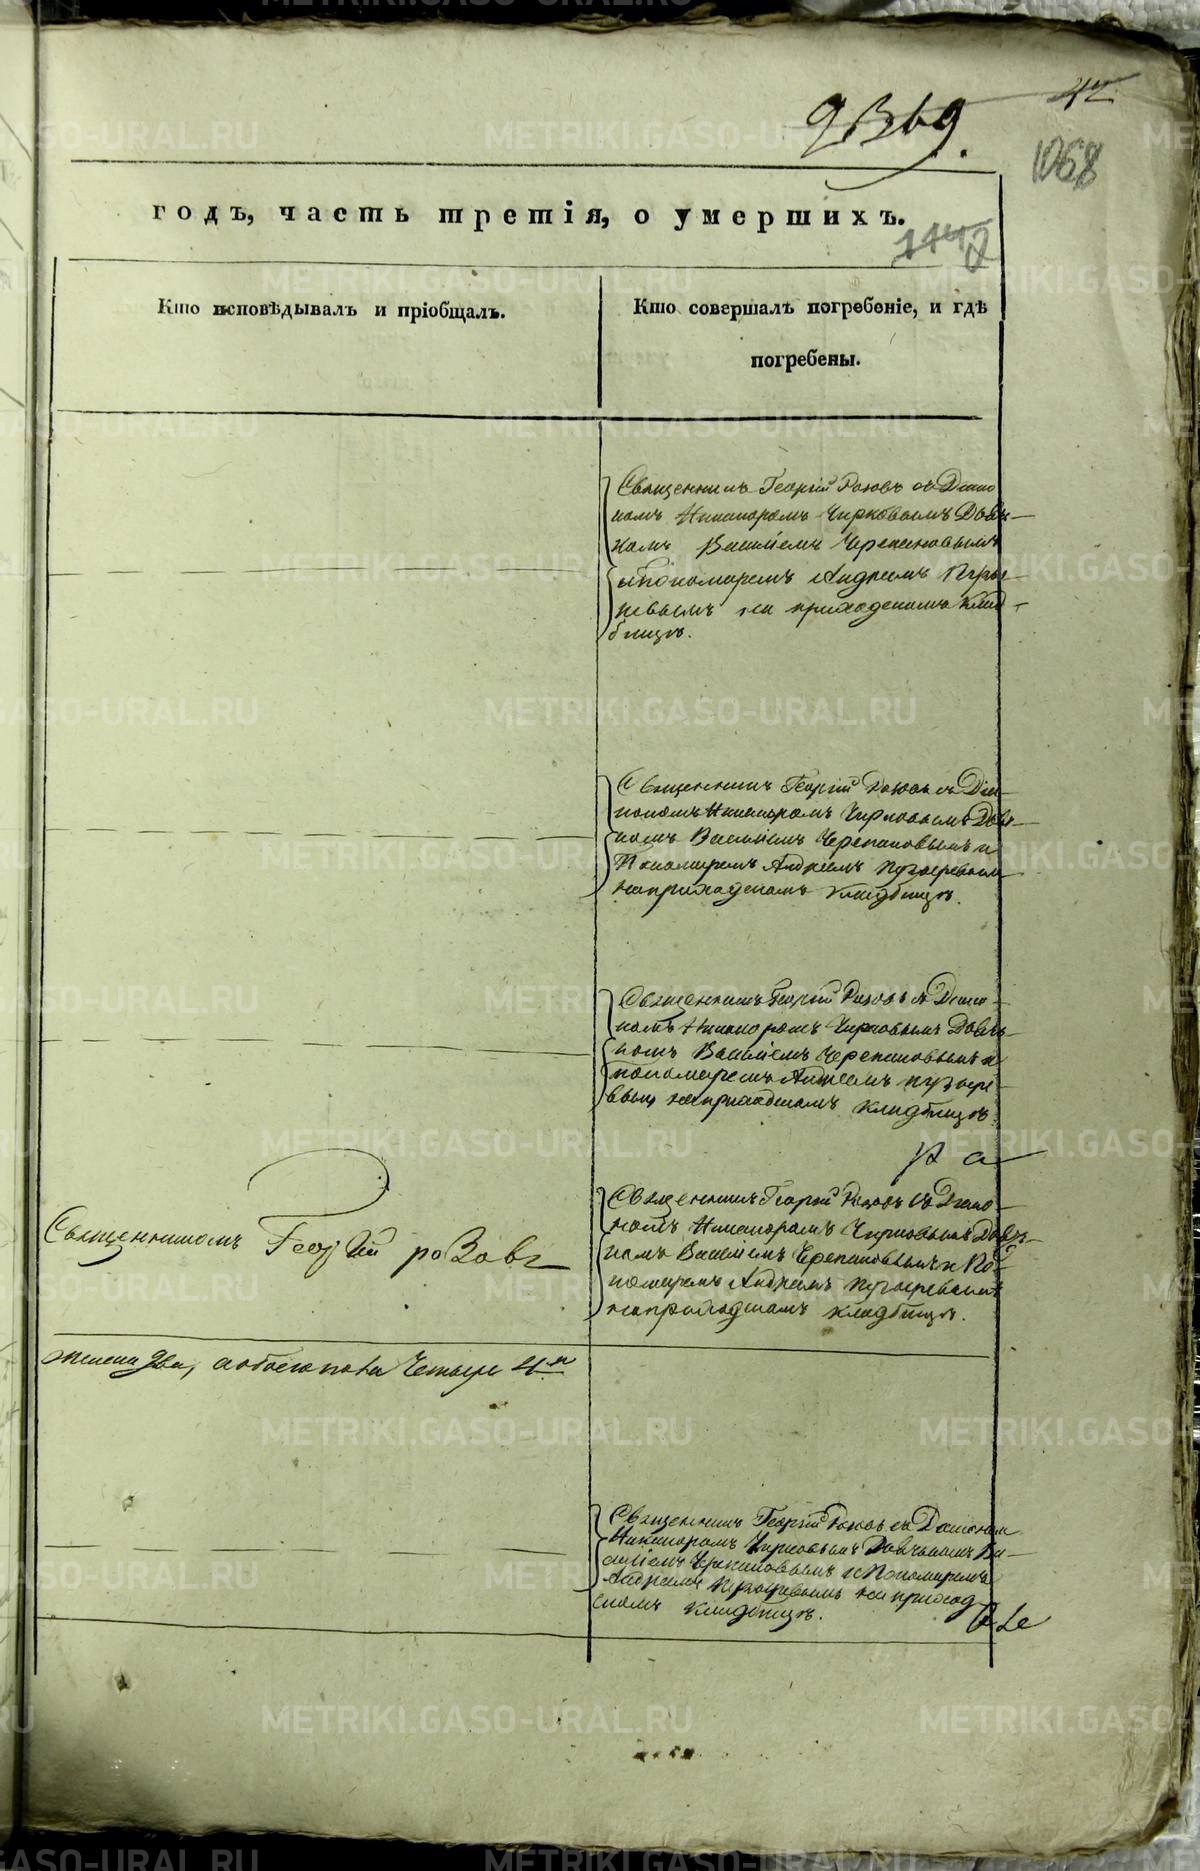 42
1068
годъ, часть третія, о умершихъ.
Кто исповѣдывалъ и пріобщалъ.
Кто совершалъ погребеніе, и гдѣ
погребены.
Священникъ Георгій Розовъ съ Діако
номъ Никаноромъ Чирковымъ Дьяч
комъ Василіемъ Черепановымъ
и Пономаремъ Андреемъ Пузы
ревымъ на приходскомъ клад
бищѣ.
Священникъ Георгій Розовъ съ Діа
кономъ Никаноромъ Чирковымъ Дьяч
комъ Василіемъ Черепановымъ и
Пономаремъ Андреемъ Пузыревымъ
на приходскомъ кладбищѣ.
Священникъ Георгій Розовъ съ Діако
номъ Никаноромъ Чирковымъ Дьяч
комъ Василіемъ Черепановымъ и
пономаремъ Андреемъ пузыре
вымъ на приходскомъ кладбищѣ.
Священникомъ Георгій розовъ
Священникъ Георгій Розовъ съ Діако
номъ Никаноромъ Чирковымъ Дьяч
комъ Василіемъ Черепановымъ и По
номаремъ Андреемъ Пузыревымъ
на приходскомъ кладбищѣ.
женска два, а обоего пола четыре 4.
Священникъ Георгій Розовъ съ Діакономъ
Никаноромъ Чирковымъ Дьячкомъ Ва
силіемъ Черепановымъ и Пономаремъ
Андреемъ Пузыревымъ на приход
скомъ кладбищѣ.
METRIKI.GASO-URAL.RU